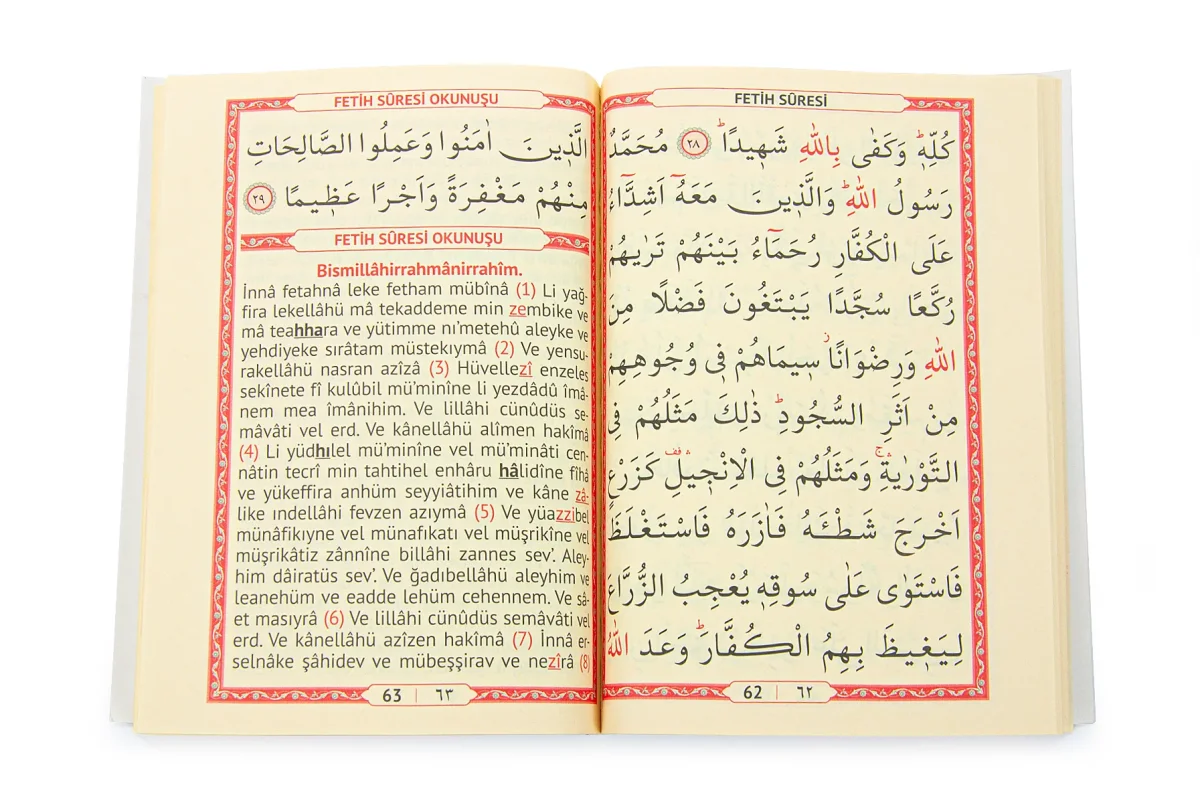 FETİH SÛRESİ
كُلِّهٖۜ وَكَفٰى بِاللّٰهِ شَهٖيدًاۜ ﴿٢٨﴾ مُحَمَّدٌ
رَسُولُ اللّٰهِۜ وَالَّذٖينَ مَعَهُٓ اَشِدَّٓاءُ
عَلَى الْكُفَّارِ رُحَمَٓاءُ بَيْنَهُمْ تَرٰيهُمْ
رُكَّعًا سُجَّدًا يَبْتَغُونَ فَضْلًا مِنَ
اللّٰهِ وَرِضْوَانًاۘ سٖيمَاهُمْ فٖى وُجُوهِهِمْ
مِنْ اَثَرِ السُّجُودِۜ ذٰلِكَ مَثَلُهُمْ فِى
التَّوْرٰيةِۚۛ وَمَثَلُهُمْ فِى الْاِنْجٖيلِ۠ۛ كَزَرْعٍ
اَخْرَجَ شَطْـَٔهُ فَاٰزَرَهُ فَاسْتَغْلَظَ
فَاسْتَوٰى عَلٰى سُوقِهٖ يُعْجِبُ الزُّرَّاعَ
لِيَغٖيظَ بِهِمُ الْكُفَّارَۜ وَعَدَ اللّٰهُ
62 | ٦٢
FETİH SÛRESİ OKUNUŞU
الَّذٖينَ اٰمَنُوا وَعَمِلُوا الصَّالِحَاتِ
مِنْهُمْ مَغْفِرَةً وَاَجْرًا عَظٖيمًا ﴿٢٩﴾
FETİH SÛRESİ OKUNUŞU
Bismillâhirrahmânirrahîm.
İnnâ fetahnâ leke fetham mübînâ (1) Li yağ-
fira lekellâhü mâ tekaddeme min zembike ve
mâ teahhara ve yütimme nı’metehû aleyke ve
yehdiyeke sırâtam müstekıymâ (2) Ve yensu-
rakellâhü nasran azîzâ (3) Hüvellezî enzeles
sekînete fî kulûbil mü’minîne li yezdâdû îmâ-
nem mea îmânihim. Ve lillâhi cünûdüs se-
mâvâti vel erd. Ve kânellâhü alîmen hakîmâ
(4) Li yüdhılel mü’minîne vel mü’minâti cen-
nâtin tecrî min tahtihel enhâru hâlidîne fîhâ
ve yükeffira anhüm seyyiâtihim ve kâne zâ-
like ındellâhi fevzen azıymâ (5) Ve yüazzibel
münâfikıyne vel münafıkati vel müşrikîne vel
müşrikâtiz zânnîne billâhi zannes sev’. Aley-
him dâiratüs sev’. Ve ğadıbellâhü aleyhim ve
leanehüm ve eadde lehüm cehennem. Ve sâ-
et masıyrâ (6) Ve lillâhi cünûdüs semâvâti vel
erd. Ve kânellâhü azîzen hakîmâ (7) İnnâ er-
selnâke şâhidev ve mübeşşirav ve nezîrâ (8)
63 | ٦٣